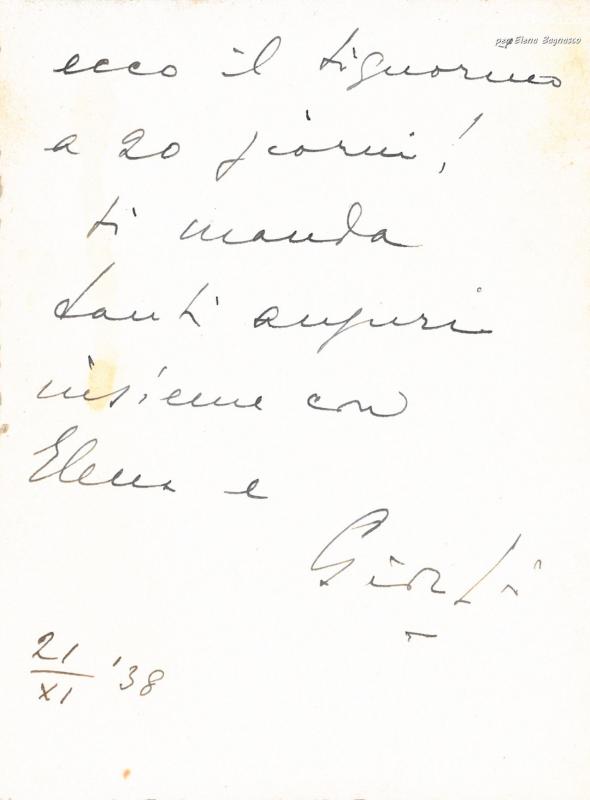 papà Elena Bagnasco
ecco il signorino
a 20 giorni!
ti manda
tanti auguri
insieme con
Elena e
21/XI '38